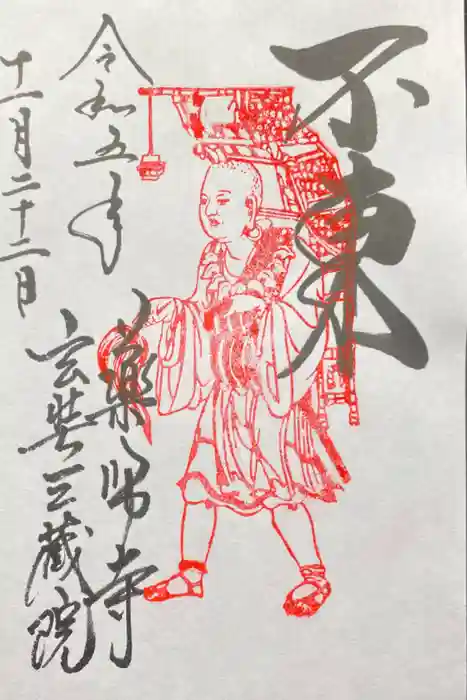 不東
令和五年
十一月二十二日
薬師寺
玄奘三蔵院